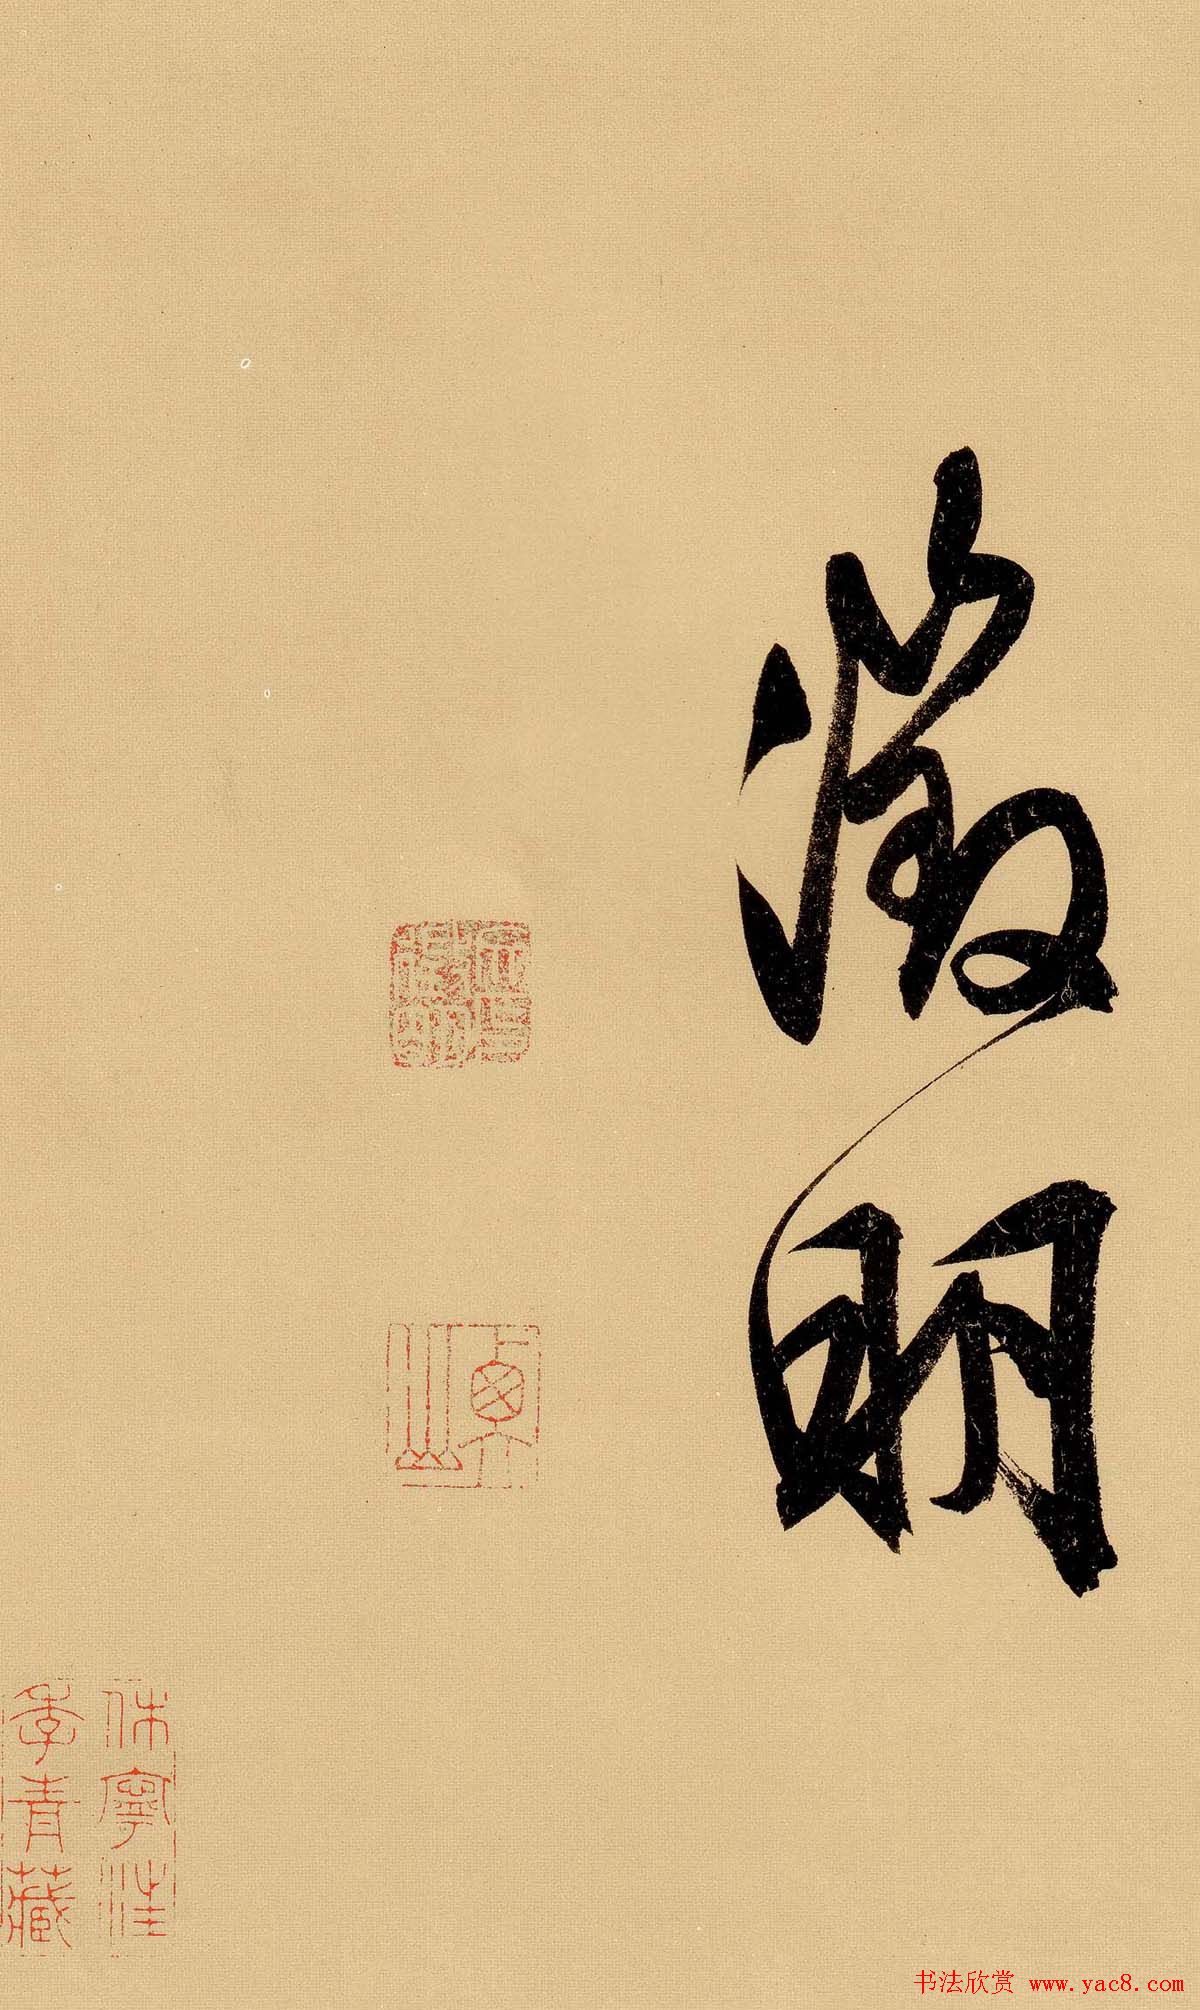 徵明
衡山
休寧汪
季青藏
书法欣赏 www.yac8.com